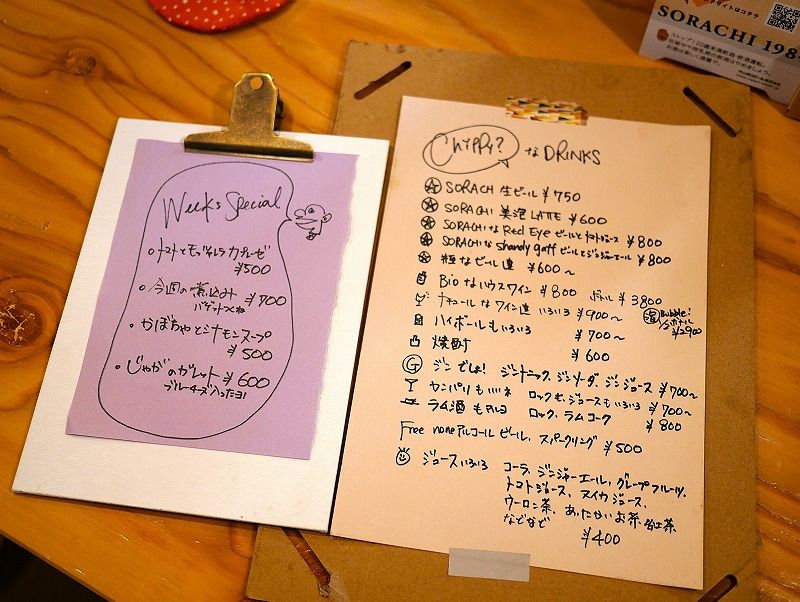 Weeks Special
・トマトとモッツァレラ カプレーゼ
¥500
・今週の煮込み ¥700
バゲットつくね
・かぼちゃとシナモンスープ
¥500
・じゃがのガレット ¥600
ブルーチーズ入ったヨ!
サイトはコチラ
SORACHI 198
ストップ!20歳未満飲酒・飲酒運転。
Chippy? な DRINKS
SORACHI 生ビール ¥750
SORACHI 美泡 LATTE ¥600
SORACHIな Red Eye ビールとトマトジュース ¥800
SORACHIな shandy gaff ビールとジンジャーエール ¥800
極なビール達 ¥600〜
Bio なハウスワイン ¥800 ボトル ¥3800
ナチュールなワイン達 いろいろ ¥900〜
泡 Bubble!
¥2900
ハイボールもいろいろ ¥700〜
焼酎 ¥600
G ジンでしょ! ジントニック、ジンソーダ、ジンジュース ¥700〜
カンパリもいいネ ロックも、ジュースもいろいろ ¥700〜
ラム酒もアルヨ ロック、ラムコーク ¥800
Free noneアルコール ビール、スパークリング ¥500
ジュースいろいろ コーラ、ジンジャーエール、グレープフルーツ、
トマトジュース、スイカジュース、
ウーロン茶、あったかいお茶、紅茶
などなど ¥400